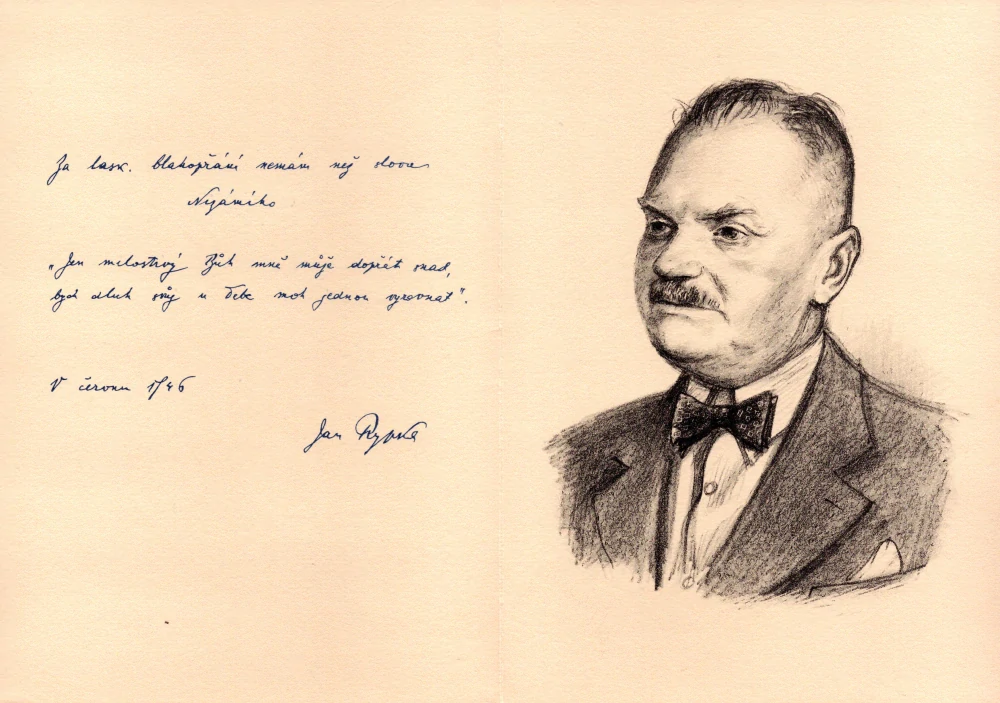 Za lask. blahopřání nemám než slova
Nizámího
„Jen milostivý Bůh mně může dopřát snad,
bych dluh svůj u Tebe moh jednou vyrovnat".
V červnu 1946
Jan Rypka